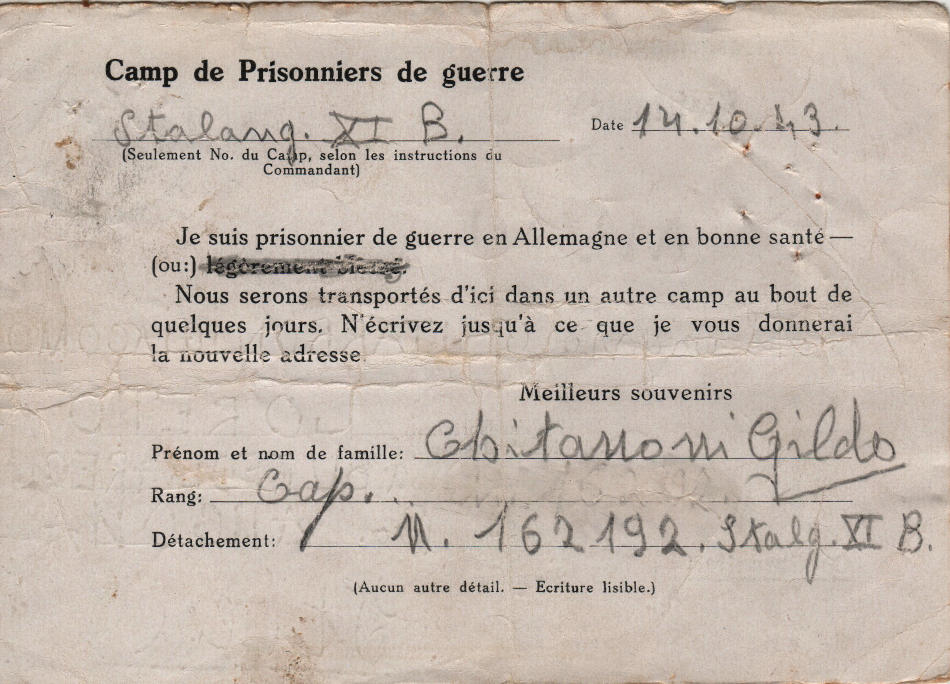 Camp de Prisonniers de guerre
Stalang. XI B. Date 14.10.43.
(Seulement No. du Camp, selon les instructions du
Commandant)
Je suis prisonnier de guerre en Allemagne et en bonne santé —
(ou:) légèrement blessé.
Nous serons transportés d'ici dans un autre camp au bout de
quelques jours. N'écrivez jusqu'à ce que je vous donnerai
la nouvelle adresse.
Meilleurs souvenirs
Prénom et nom de famille: Gildo
Rang: Cap.
Détachement: N. 162192. Stalg. XI B.
(Aucun autre détail. — Ecriture lisible.)